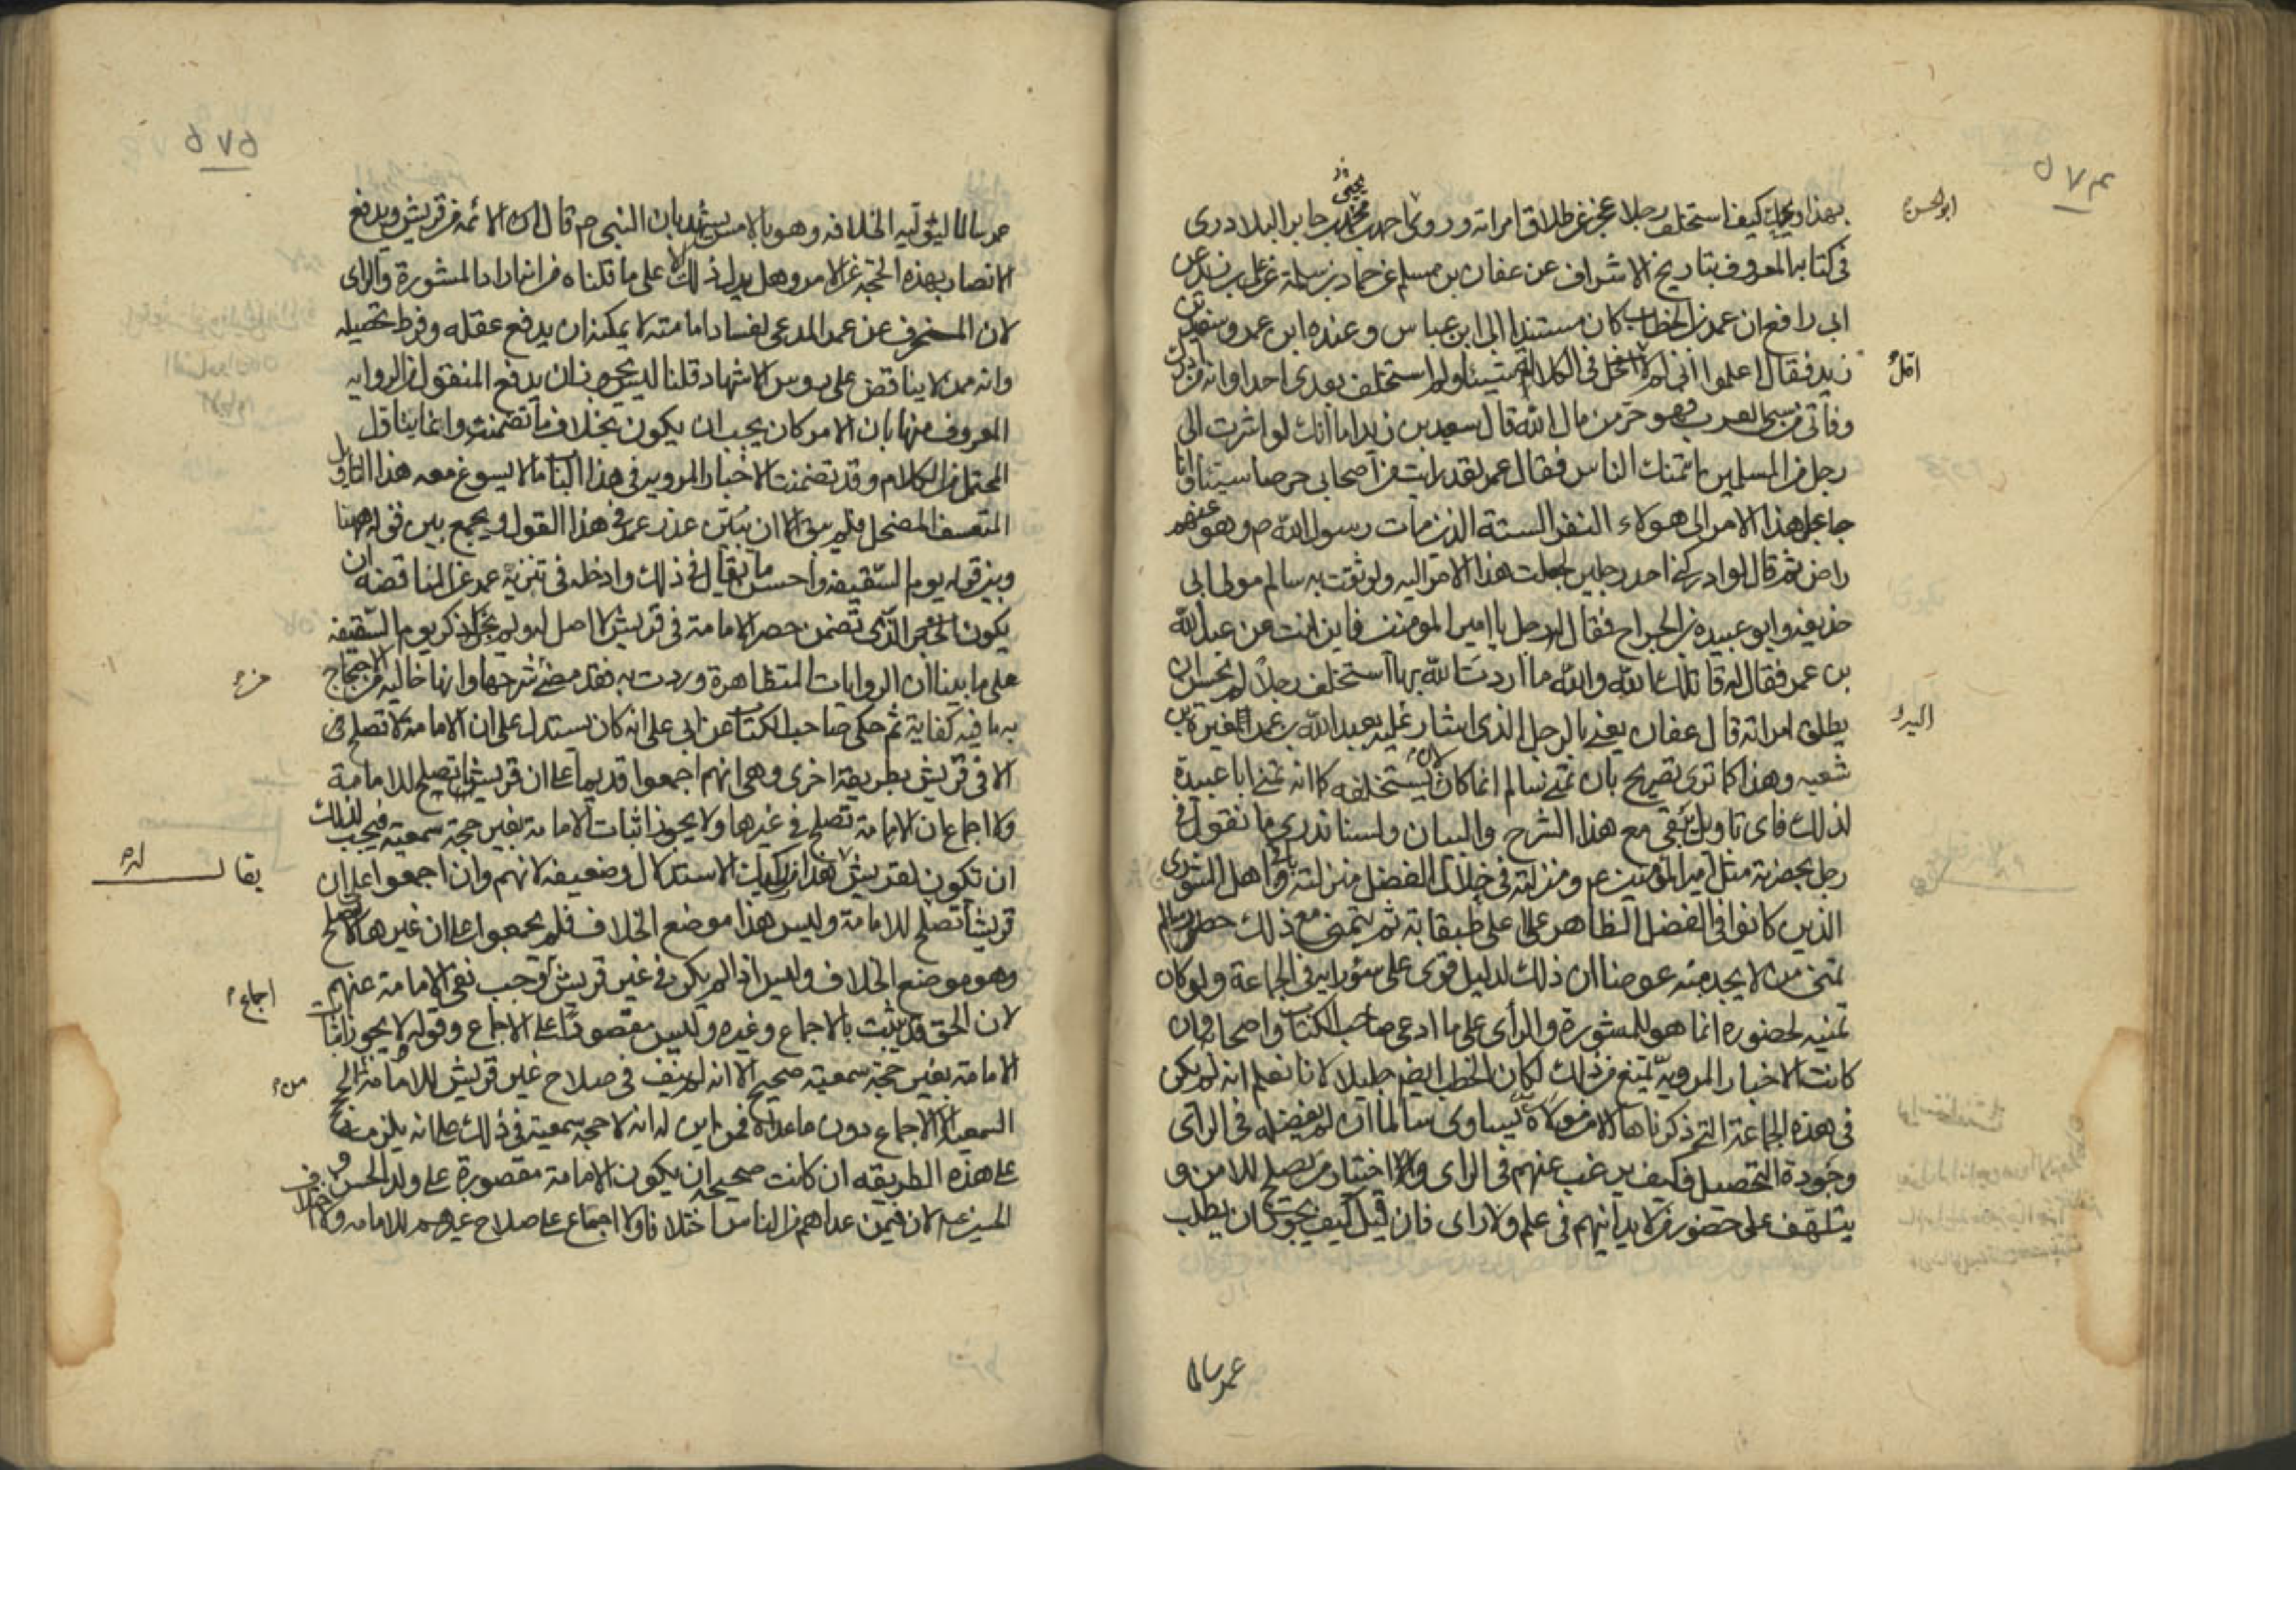 ٥٧٤
ابوالحسن
بهذا ويحك كيف استخلف رجلا عجز عن طلاق امراته وروى احمد بن محمد بن يحيى بن جابر البلادرى
فى كتابه المعروف بتاريخ الاشراف عن عفان بن مسلم عن حماد بن سلمة عن على بن زيد عن
ابى رافع ان عمر بن الخطاب كان مستندا الى ابن عباس وعنده ابن عمر وسعيد بن
زيد فقال اعلموا انى لم اقل فى الكلالة شيئا ولم استخلف بعدى احدا وانه من ادرك
اقل
وفاتى من سبى العرب فهو حر من مال الله قال سعيد بن زيد اما انك لو اشرت الى
رجل من المسلمين ائتمنك الناس فقال عمر لقد رايت من اصحابى حرصا سيئا وانا
جاعل هذا الامر الى هولاء النفر الستة الذين مات رسول الله ص وهو عنهم
راض ثم قال لو ادركنى احد رجلين لجعلت هذا الامر اليه ولوثقت به سالم مولى ابى
حذيفه وابو عبيدة بن الجراح فقال له رجل يا امير المومنين فاين انت عن عبد الله
بن عمر فقال له قاتلك الله والله ما اردت الله بها استخلف رجلا لم يحسن ان
يطلق امراته قال عفان يعنى بالرجل الذى اشار عليه بعبد الله بن عمر المغيرة بن
اليه
شعبه وهذا كما ترى تصريح بان تمنى سالم انما كان لان يستخلفه كما انه تمنى ابا عبيدة
لذلك فاى تاويل يبقى مع هذا الشرح والبيان ولسنا ندرى ما نقول فى
رجل بحضرته مثل امير المؤمنين ع ومنزلته فى خلال الفضل منزلته وباقى اهل الشورى
الذين كانوا فى الفضل الظاهر على على طبقاته ثم يتمنى مع ذلك حضور سالم
تمنى من لا يجد منه عوضا ان ذلك لدليل قوى على سؤ رايه فى الجماعة ولو كان
تمنيه لحضوره انما هو للمشورة والراى على ما ادعى صاحب الكتاب واصحابه وان
كانت الاخبار المروية تمنع من ذلك لكان الخطب ايضا جليلا لانا نعلم انه لم يكن
فى هذه الجماعة التى ذكرناها الا من هو يساوى سالما ان لم يفضله فى الراى
وجودة التحصيل فكيف يرغب عنهم فى الراى واختيار من يصلح للامر و
يتلهف على حضور من لا يدانيهم فى علم ولا راى فان قيل كيف يجوز ان يطلب
عمر سالما
٥٧٥
عمر سالما ليوليه الخلافه وهو بالامس يشهد بان النبى ص قال ان الائمه من قريش ويدفع
الانصار بهذه الحجة عن الامر وهل يدل ذلك الا على ما قلناه من انه اراد المشورة والراى
لان المنحرف عن عمر المدعى لفساد امامته لا يمكنه ان يدفع عقله وفرط تحصيله
وانه ممن لا يناقض على روس الاشهاد قلنا ليس يجوز ان يدفع المنقول من الروايه
المعروف منها بان الامر كان يجب ان يكون بخلاف ما تضمنت وانما يتاول
المحتمل من الكلام وقد تضمنت الاخبار المرويه فى هذا الباب ما لا يسوغ معه هذا التاويل
المتعسف المضمحل فلم يبق الا ان نبين عذر عمر فى هذا القول ونجمع بين قوله هيهنا
وبين قوله يوم السقيفه واحسن ما يقال فى ذلك وادخله فى تنزيه عمر عن المناقضه ان
يكون الخبر الذى تضمن حصر الامامة فى قريش لا اصل له ولم يجر له ذكر يوم السقيفه
على ما بينا ان الروايات المتظاهرة وردت به فقد مضى شرحها وانها خاليه من الاحتجاج
به ما فيه كفاية ثم حكى صاحب الكتاب عن ابى على انه كان يستدل على ان الامامة لا تصلح
الا فى قريش بطريقة اخرى وهى انهم اجمعوا قديما على ان قريشا تصلح للامامة
ولا اجماع ان الامامة تصلح فى غيرها ولا يجوز اثبات الامامة بغير حجة سمعية فيجب لذلك
ان تكون لقريش
يقال له
هذا من ركيك الاستدلال وضعيفه لانهم وان اجمعوا على ان
قريشا تصلح للامامة وليس هذا موضع الخلاف فلم يجمعوا على ان غيرها لا يصلح
وهو موضع الخلاف وليس اذا لم يكن فى غير قريش
اجماع
وجب نفى الامامة عنهم
لان الحق قد يثبت بالاجماع وغيره وليس مقصورا على الاجماع وقوله لا يجوز اثبات
الامامة بغير حجة سمعية صحيح الا انه لم ينف فى صلاح غير قريش للامامة
من
الحجج السمعية الا الاجماع دون ما عداه فمن اين له انه لا حجة سمعية فى ذلك على انه يلزم
على هذه الطريقه ان كانت صحيحه ان يكون الامامة مقصورة على ولد الحسن و
الحسين ع لان فيمن عداهم من الناس اختلافا ولا اجماع على صلاح غيرهم للامامه ولا خلاف